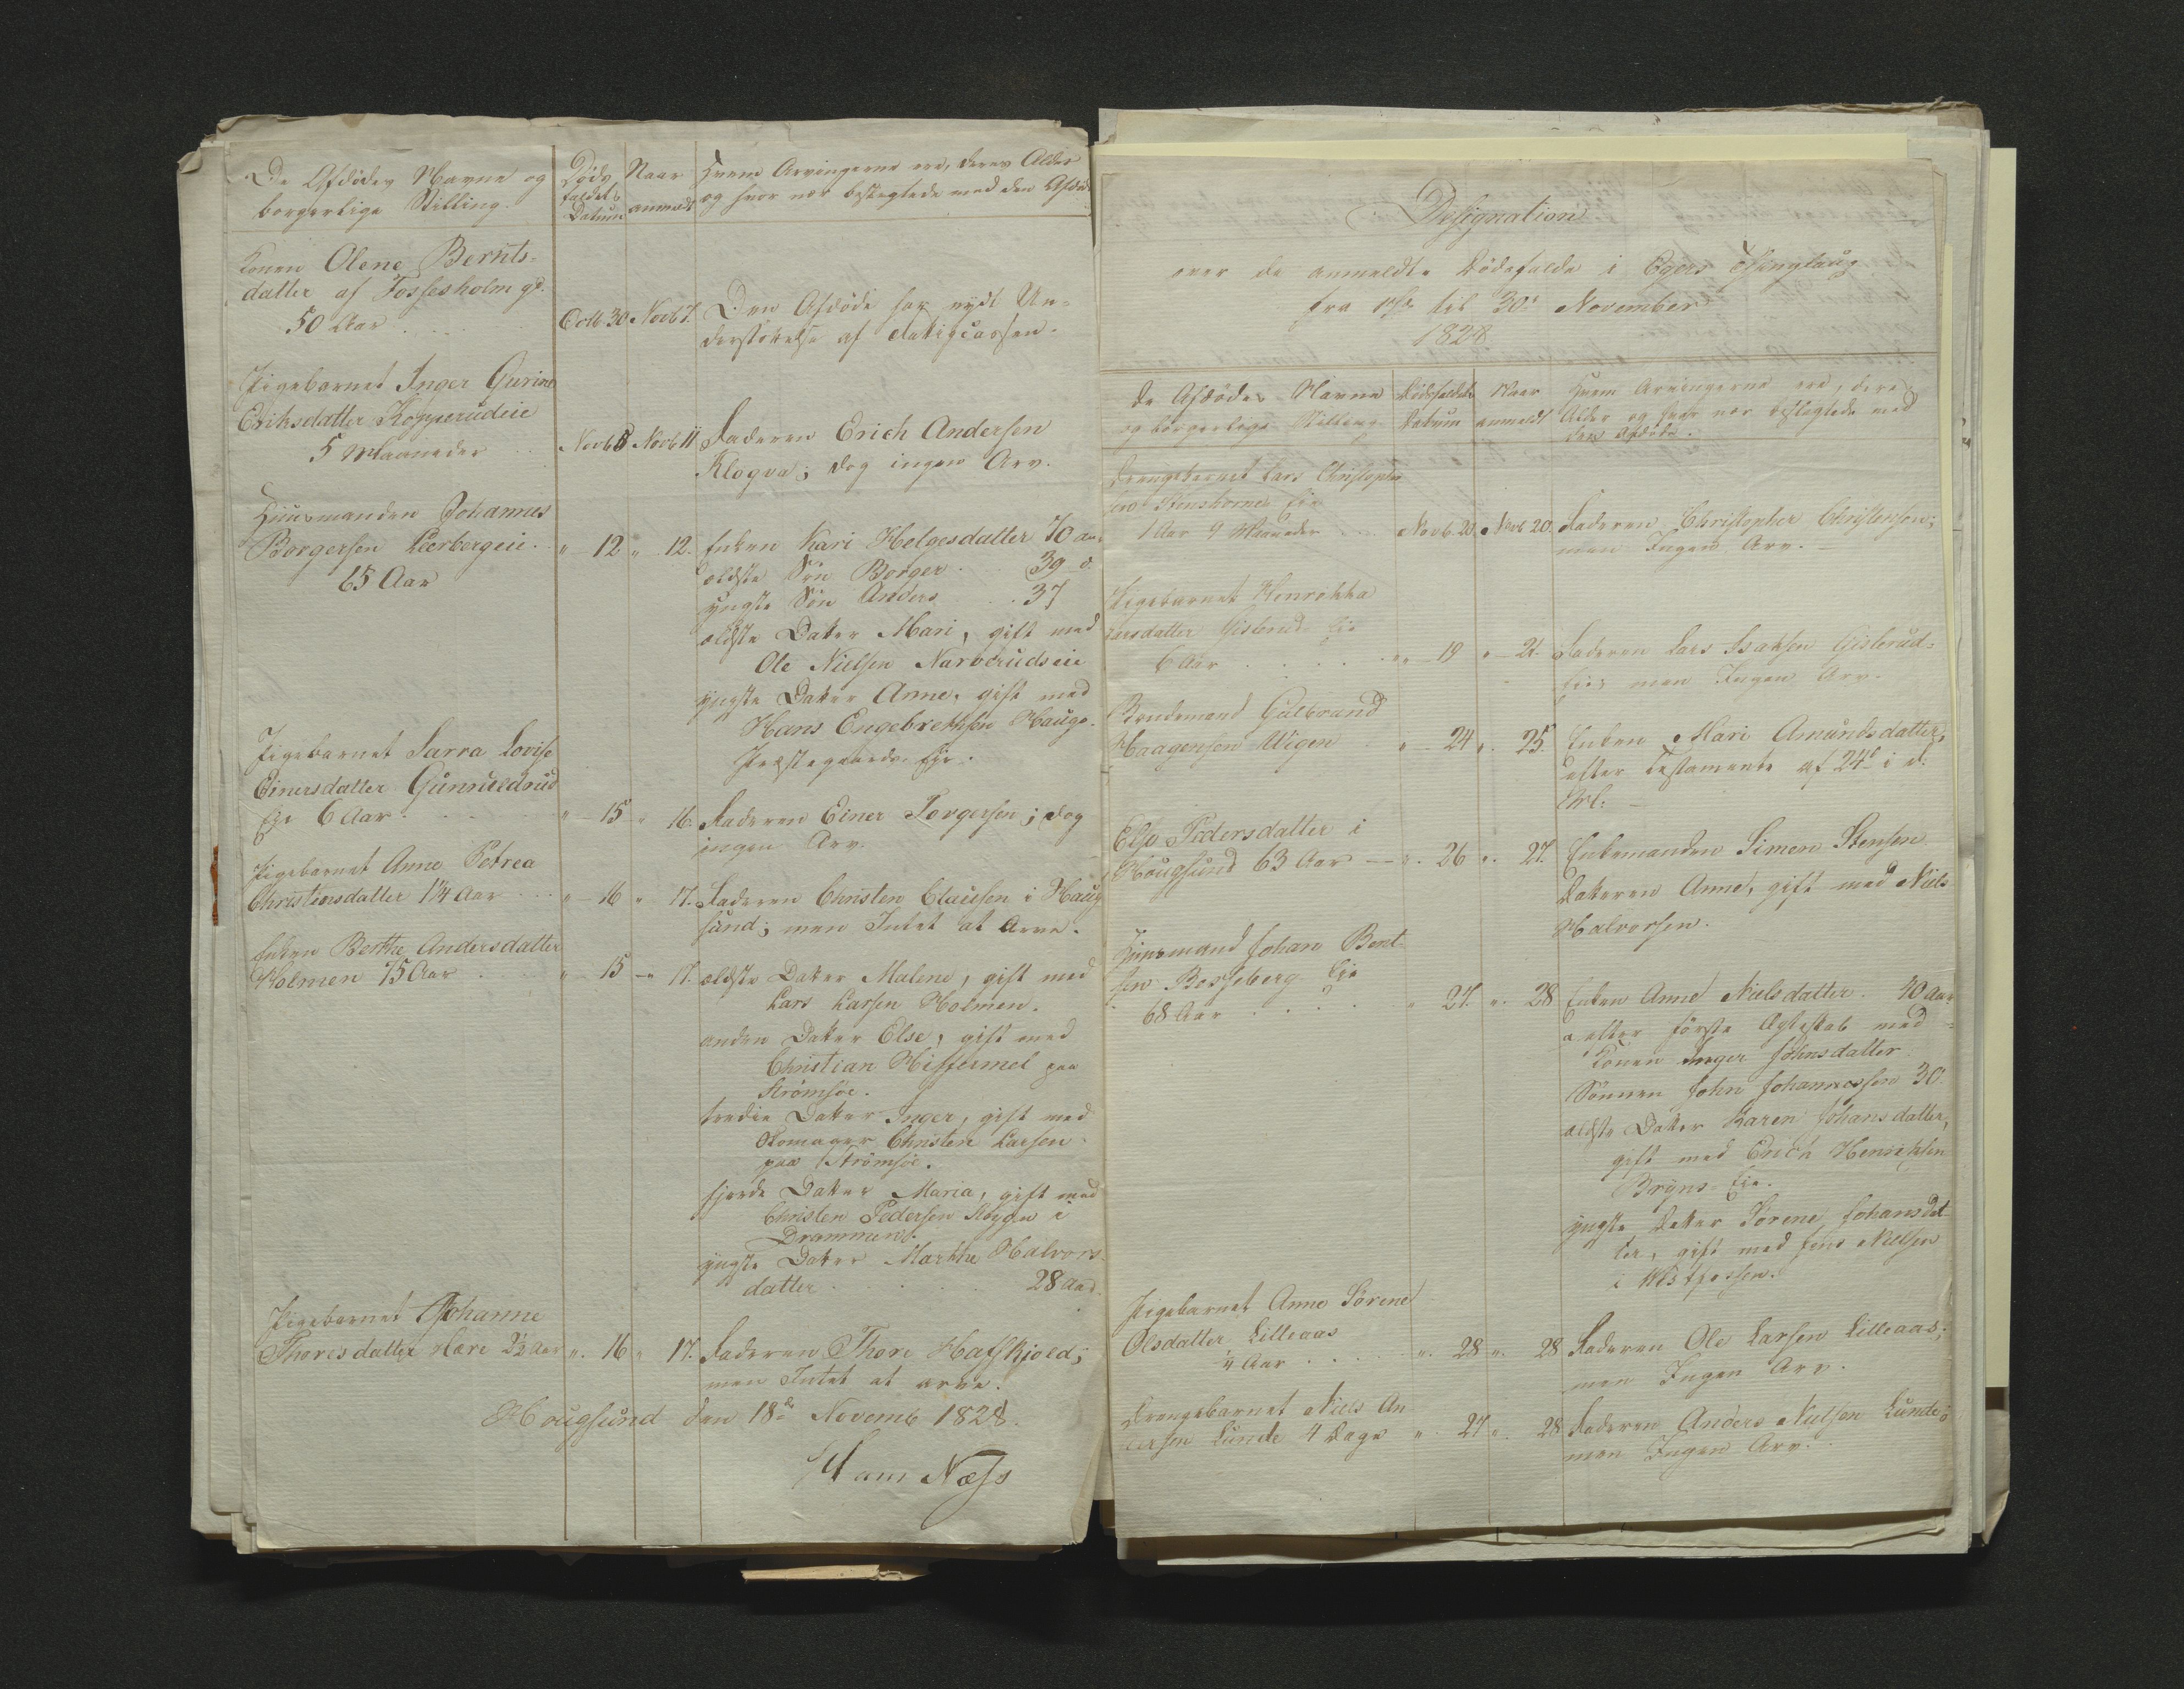 De Afdødes Navne og
borgerlige Stilling.
Døds
faldets
Datum
Naar
anmeldt
Hvem Arvingerne ere, deres Alder
og hvor nær beslegtede med den Afdøde
Konen Olene Bernts-
datter af Fossesholm gd.
50 Aar
Octb 30 Novb 7.
Den Afdøde har nydt Un-
derstøttelse af Fattigcassen.
Pigebarnet Inger Gurine
Eriksdatter Kopperudeie
5 Maaneder
Novb 8 Novb 11
Faderen Erich Andersen
Klogva; dog ingen Arv.
Huusmanden Johannes
Borgersen Leerbergeie
65 Aar
" 12 " 12.
Enken Kari Helgesdatter 70 aar
ældste Søn Borger 39 d.
yngste Søn Anders 37
ældste Datter Mari, gift med
Ole Nielsen Narverudseie
yngste Datter Anne, gift med
Hans Engebrethsen Hauge-
Præstegaards Eje.
Pigebarnet Sarra Lovise
Einersdatter Gunnildrud
Eje 6 Aar
" 15 " 16.
Faderen Einer Torgersen; dog
ingen Arv.
Pigebarnet Anne Petrea
Christensdatter 1¼ Aar
" 16 " 17.
Faderen Christen Clausen i Houg
sund; men Intet at Arve.
Enken Berthe Andersdatter
Holmen 75 Aar
" 15 " 17.
ældste Datter Malene, gift med
Lars Larsen Holmen.
anden Datter Else, gift med
Christian Histermel paa
Strømsøe.
tredie Datter Inger, gift med
Skomager Christen Larsen
paa Strømsøe.
fjerde Datter Maria, gift med
Christen Pedersen i
Drammen.
yngste Datter Marthe Halvors-
datter 28 aar.
Pigebarnet Johanne
Thoresdatter Hære 2½ Aar
" 16 " 17.
Faderen Thore Hafskjold;
men Intet at arve.
Hougsund den 18de Novemb 1828.
Ham Næss
Designation
over de anmeldte Dødsfalde i Egers Thinglaug
fra 18de til 30te November
1828
De Afdødes Navne
og borgerlige Stilling
Dødsfaldets
Datum
Naar
anmeldt
Hvem Arvingerne ere, deres
Alder og hvor nær beslegtede med
den Afdøde.
Drengebarnet Lars Christopher
sen Stenshorne Eje
1 Aar 9 Maaneder
Novb. 20. Novb 20.
Faderen Christopher Christensen;
men Ingen Arv.
Pigebarnet Henrikka
Larsdatter Gislerud Eje
6 Aar
" 19 " 21.
Faderen Lars Isaksen Gislerud-
Eje; men Ingen Arv.
Bondemand Gulbrand
Haagensen Wigen
" 24 " 25.
Enken Mari Amundsdatter,
efter Testamente af 24de i d:
Else Pedersdatter i
Hougsund 63 Aar
" 26 " 27.
Enkemanden Simon Stensen
Datteren Anne, gift med Niels
Halvorsen.
Huusmand Johan Bent-
sen Bosseberg Eje
68 Aar
" 27. " 28
Enken Anne Nielsdatter. 40 Aar
efter første Ægteskab med
Konen Inger Johnsdatter
Sønnen John Johannessen 30
ældste Datter Karen Johansdatter,
gift med Erich Henrichsen
Bryns-Eje.
yngste Datter Sørene Johansdat-
ter, gift med Jens Nielsen
i Westfossen.
Pigebarnet Anne Sørene
Olsdatter Lilleaas
¼ Aar
" 28 " 28
Faderen Ole Larsen Lilleaas;
men Ingen Arv.
Drengebarnet Niels An
dersen Lunde 4 Dage
" 27 " 28
Faderen Anders Nielsen Lunde;
men Ingen Arv.